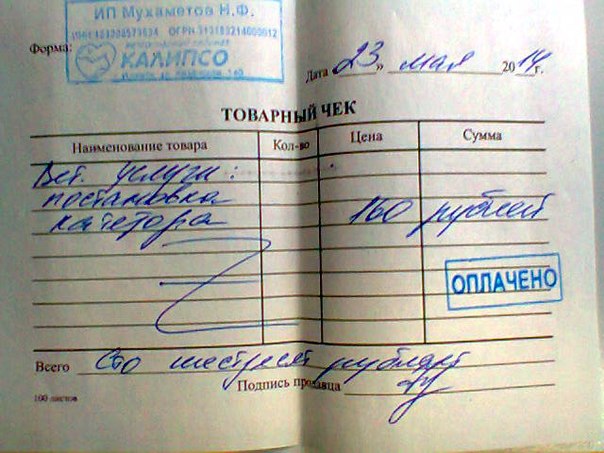 ИП Мухаметов Н.Ф.
ОГРН
КАЛИПСО
Форма:
Дата 23 " мая 2014 г.
ТОВАРНЫЙ ЧЕК
Наименование товара Кол-во Цена Сумма
Вет. услуги:
постановка
катетера 160 рублей
ОПЛАЧЕНО
Всего Сто шестьдесят рублей
Подпись продавца
100 листов